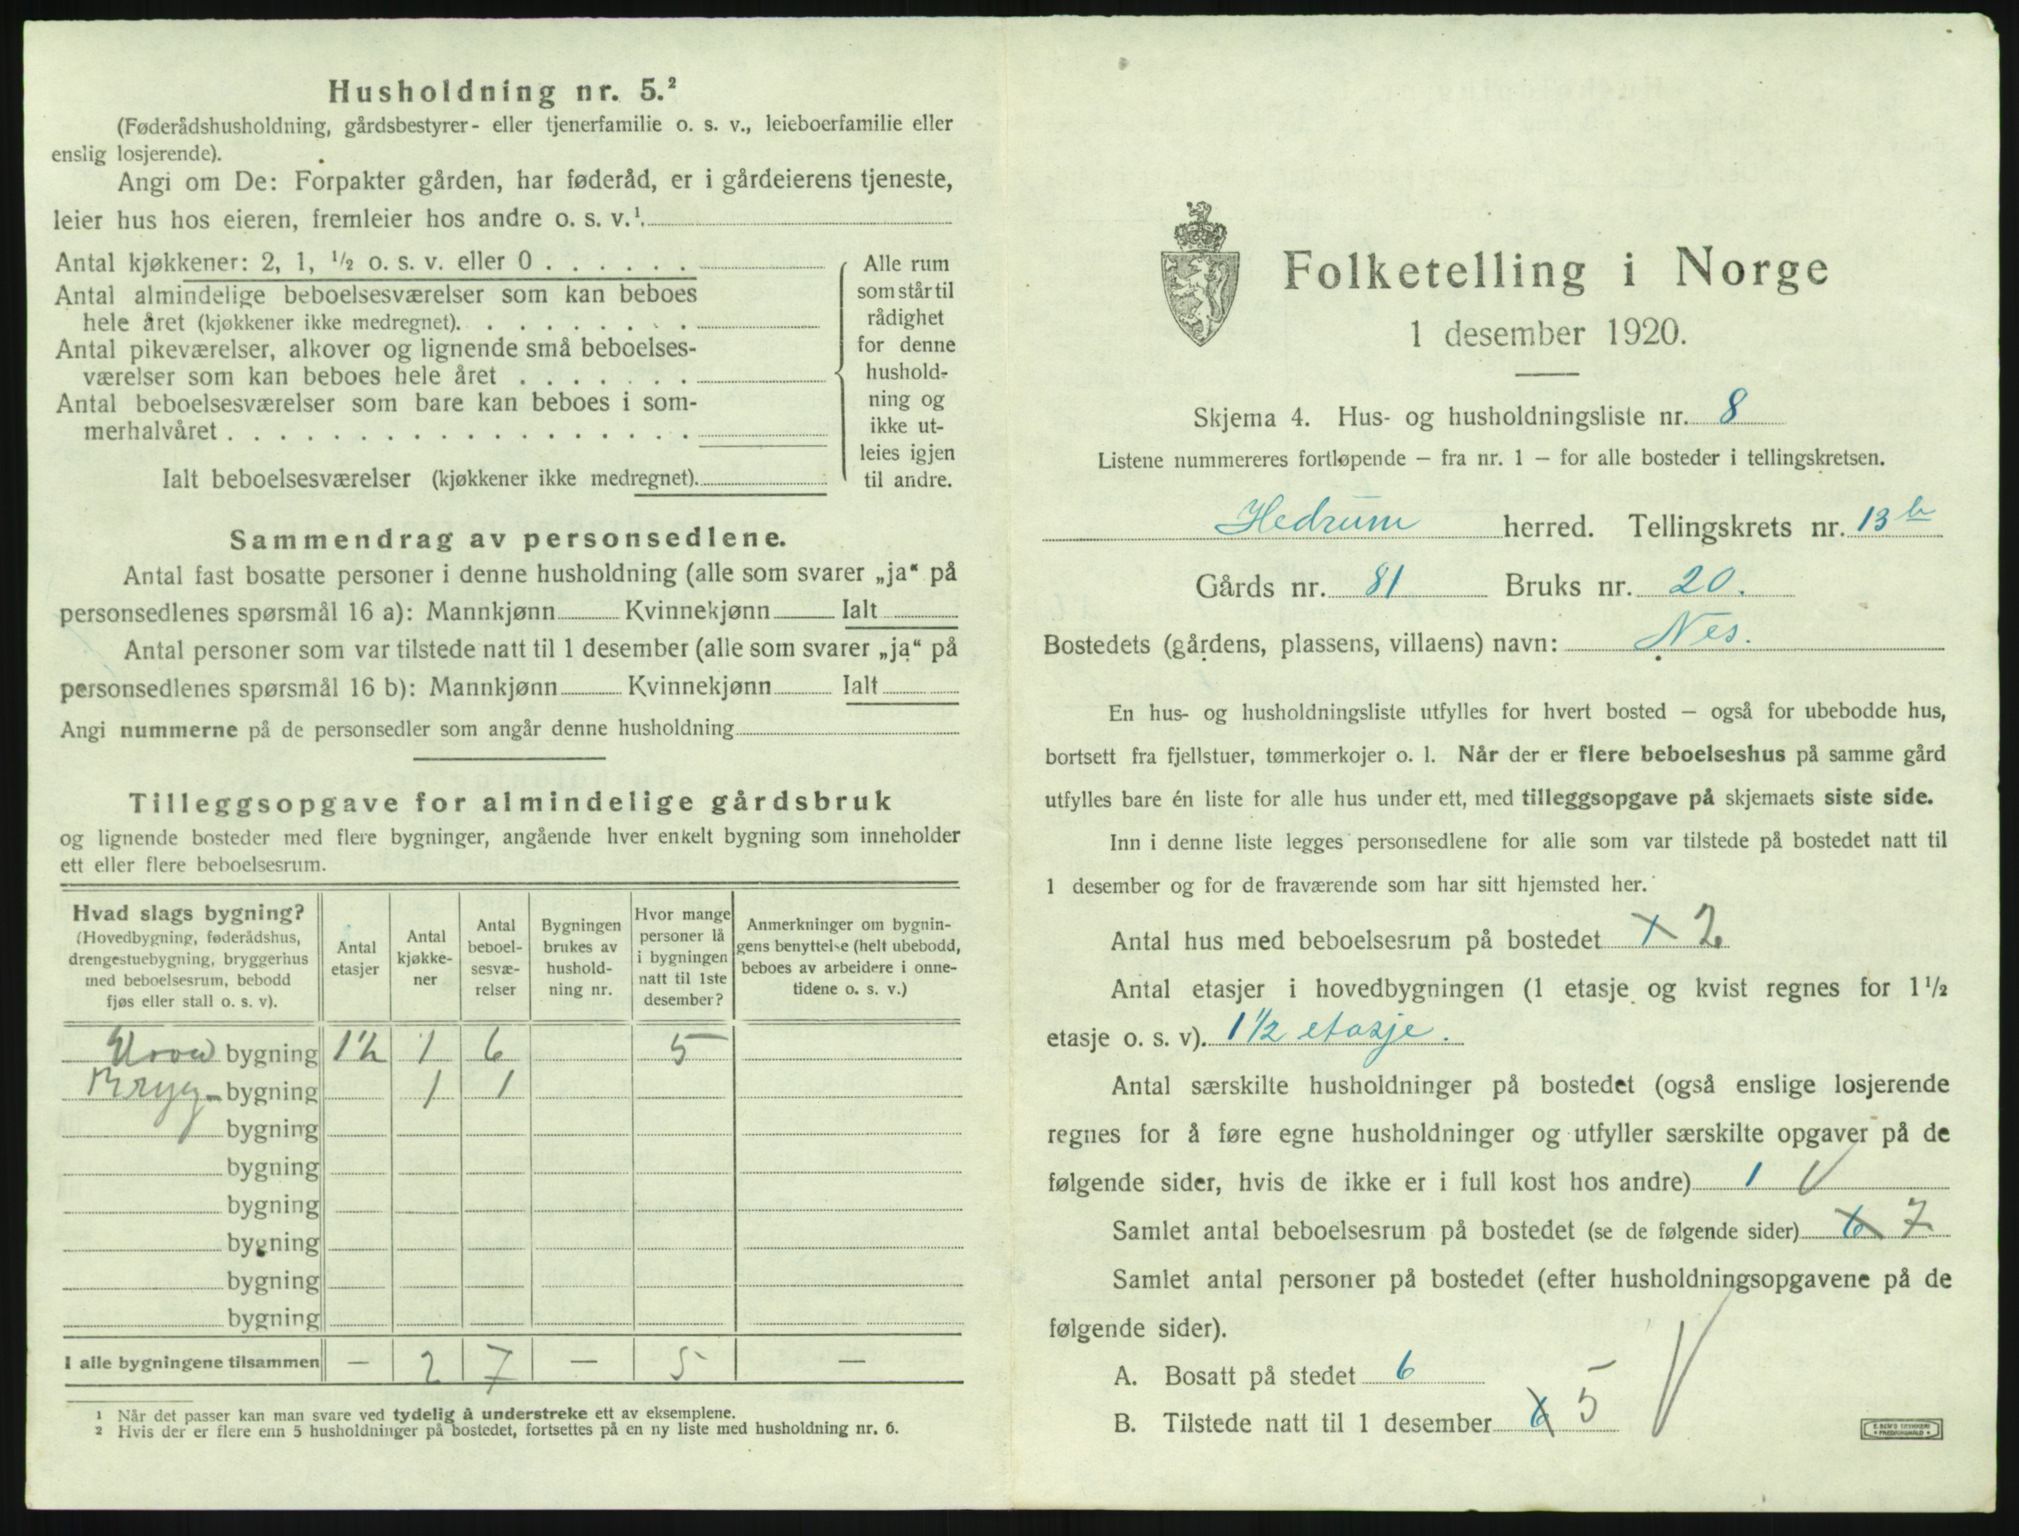 Husholdning nr. 5.²
(Føderådshusholdning, gårdsbestyrer- eller tjenerfamilie o. s. v., leieboerfamilie eller
enslig losjerende).
Angi om De: Forpakter gården, har føderåd, er i gårdeierens tjeneste,
leier hus hos eieren, fremleier hos andre o. s. v.¹.
Antal kjøkkener: 2, 1, ½ o. s. v. eller 0 . . . . . .
Antal almindelige beboelsesværelser som kan beboes
hele året (kjøkkener ikke medregnet). . . . . . . . .
Antal pikeværelser, alkover og lignende små beboelses-
værelser som kan beboes hele året . . . . . . .
Antal beboelsesværelser som bare kan beboes i som-
merhalvåret . . . . . . . . . . . . . . . . . .
Ialt beboelsesværelser (kjøkkener ikke medregnet).
Alle rum
som står til
rådighet
for denne
hushold-
ning og
ikke ut-
leies igjen
til andre.
Sammendrag av personsedlene.
Antal fast bosatte personer i denne husholdning (alle som svarer „ja“ på
personsedlenes spørsmål 16 a): Mannkjønn Kvinnekjønn Ialt
Antal personer som var tilstede natt til 1 desember (alle som svarer „ja“ på
personsedlenes spørsmål 16 b): Mannkjønn Kvinnekjønn Ialt
Angi nummerne på de personsedler som angår denne husholdning
Tilleggsopgave for almindelige gårdsbruk
og lignende bosteder med flere bygninger, angående hver enkelt bygning som inneholder
ett eller flere beboelsesrum.
Hvad slags bygning?
(Hovedbygning, føderådshus,
drengestuebygning, bryggerhus
med beboelsesrum, bebodd
fjøs eller stall o. s. v).
Antal
etasjer
Antal
kjøkke-
ner
Antal
beboel-
sesvæ-
relser
Bygningen
brukes av
hushold-
ning nr.
Hvor mange
personer lå
i bygningen
natt til 1ste
desember?
Anmerkninger om bygnin-
gens benyttelse (helt ubebodd,
beboes av arbeidere i onne-
tidene o. s. v.)
Hoved bygning 1½ 1 6 5
Bryg- bygning 1 1
bygning
bygning
bygning
bygning
bygning
bygning
I alle bygningene tilsammen — 2 7 — 5 —
¹ Når det passer kan man svare ved tydelig å understreke ett av eksemplene.
² Hvis der er flere enn 5 husholdninger på bostedet, fortsettes på en ny liste med husholdning nr. 6.
Folketelling i Norge
1 desember 1920.
Skjema 4. Hus- og husholdningsliste nr. 8
Listene nummereres fortløpende — fra nr. 1 — for alle bosteder i tellingskretsen.
Hedrum herred. Tellingskrets nr. 13 b
Gårds nr. 81 Bruks nr. 20.
Bostedets (gårdens, plassens, villaens) navn: Nes.
En hus- og husholdningsliste utfylles for hvert bosted — også for ubebodde hus,
bortsett fra fjellstuer, tømmerkojer o. l. Når der er flere beboelseshus på samme gård
utfylles bare én liste for alle hus under ett, med tilleggsopgave på skjemaets siste side.
Inn i denne liste legges personsedlene for alle som var tilstede på bostedet natt til
1 desember og for de fraværende som har sitt hjemsted her.
Antal hus med beboelsesrum på bostedet 1 2
Antal etasjer i hovedbygningen (1 etasje og kvist regnes for 1½
etasje o. s. v). 1½ etasje.
Antal særskilte husholdninger på bostedet (også enslige losjerende
regnes for å føre egne husholdninger og utfyller særskilte opgaver på de
følgende sider, hvis de ikke er i full kost hos andre) 1 V
Samlet antal beboelsesrum på bostedet (se de følgende sider) 6 7
Samlet antal personer på bostedet (efter husholdningsopgavene på de
følgende sider).
A. Bosatt på stedet 6
B. Tilstede natt til 1 desember 6 5 V